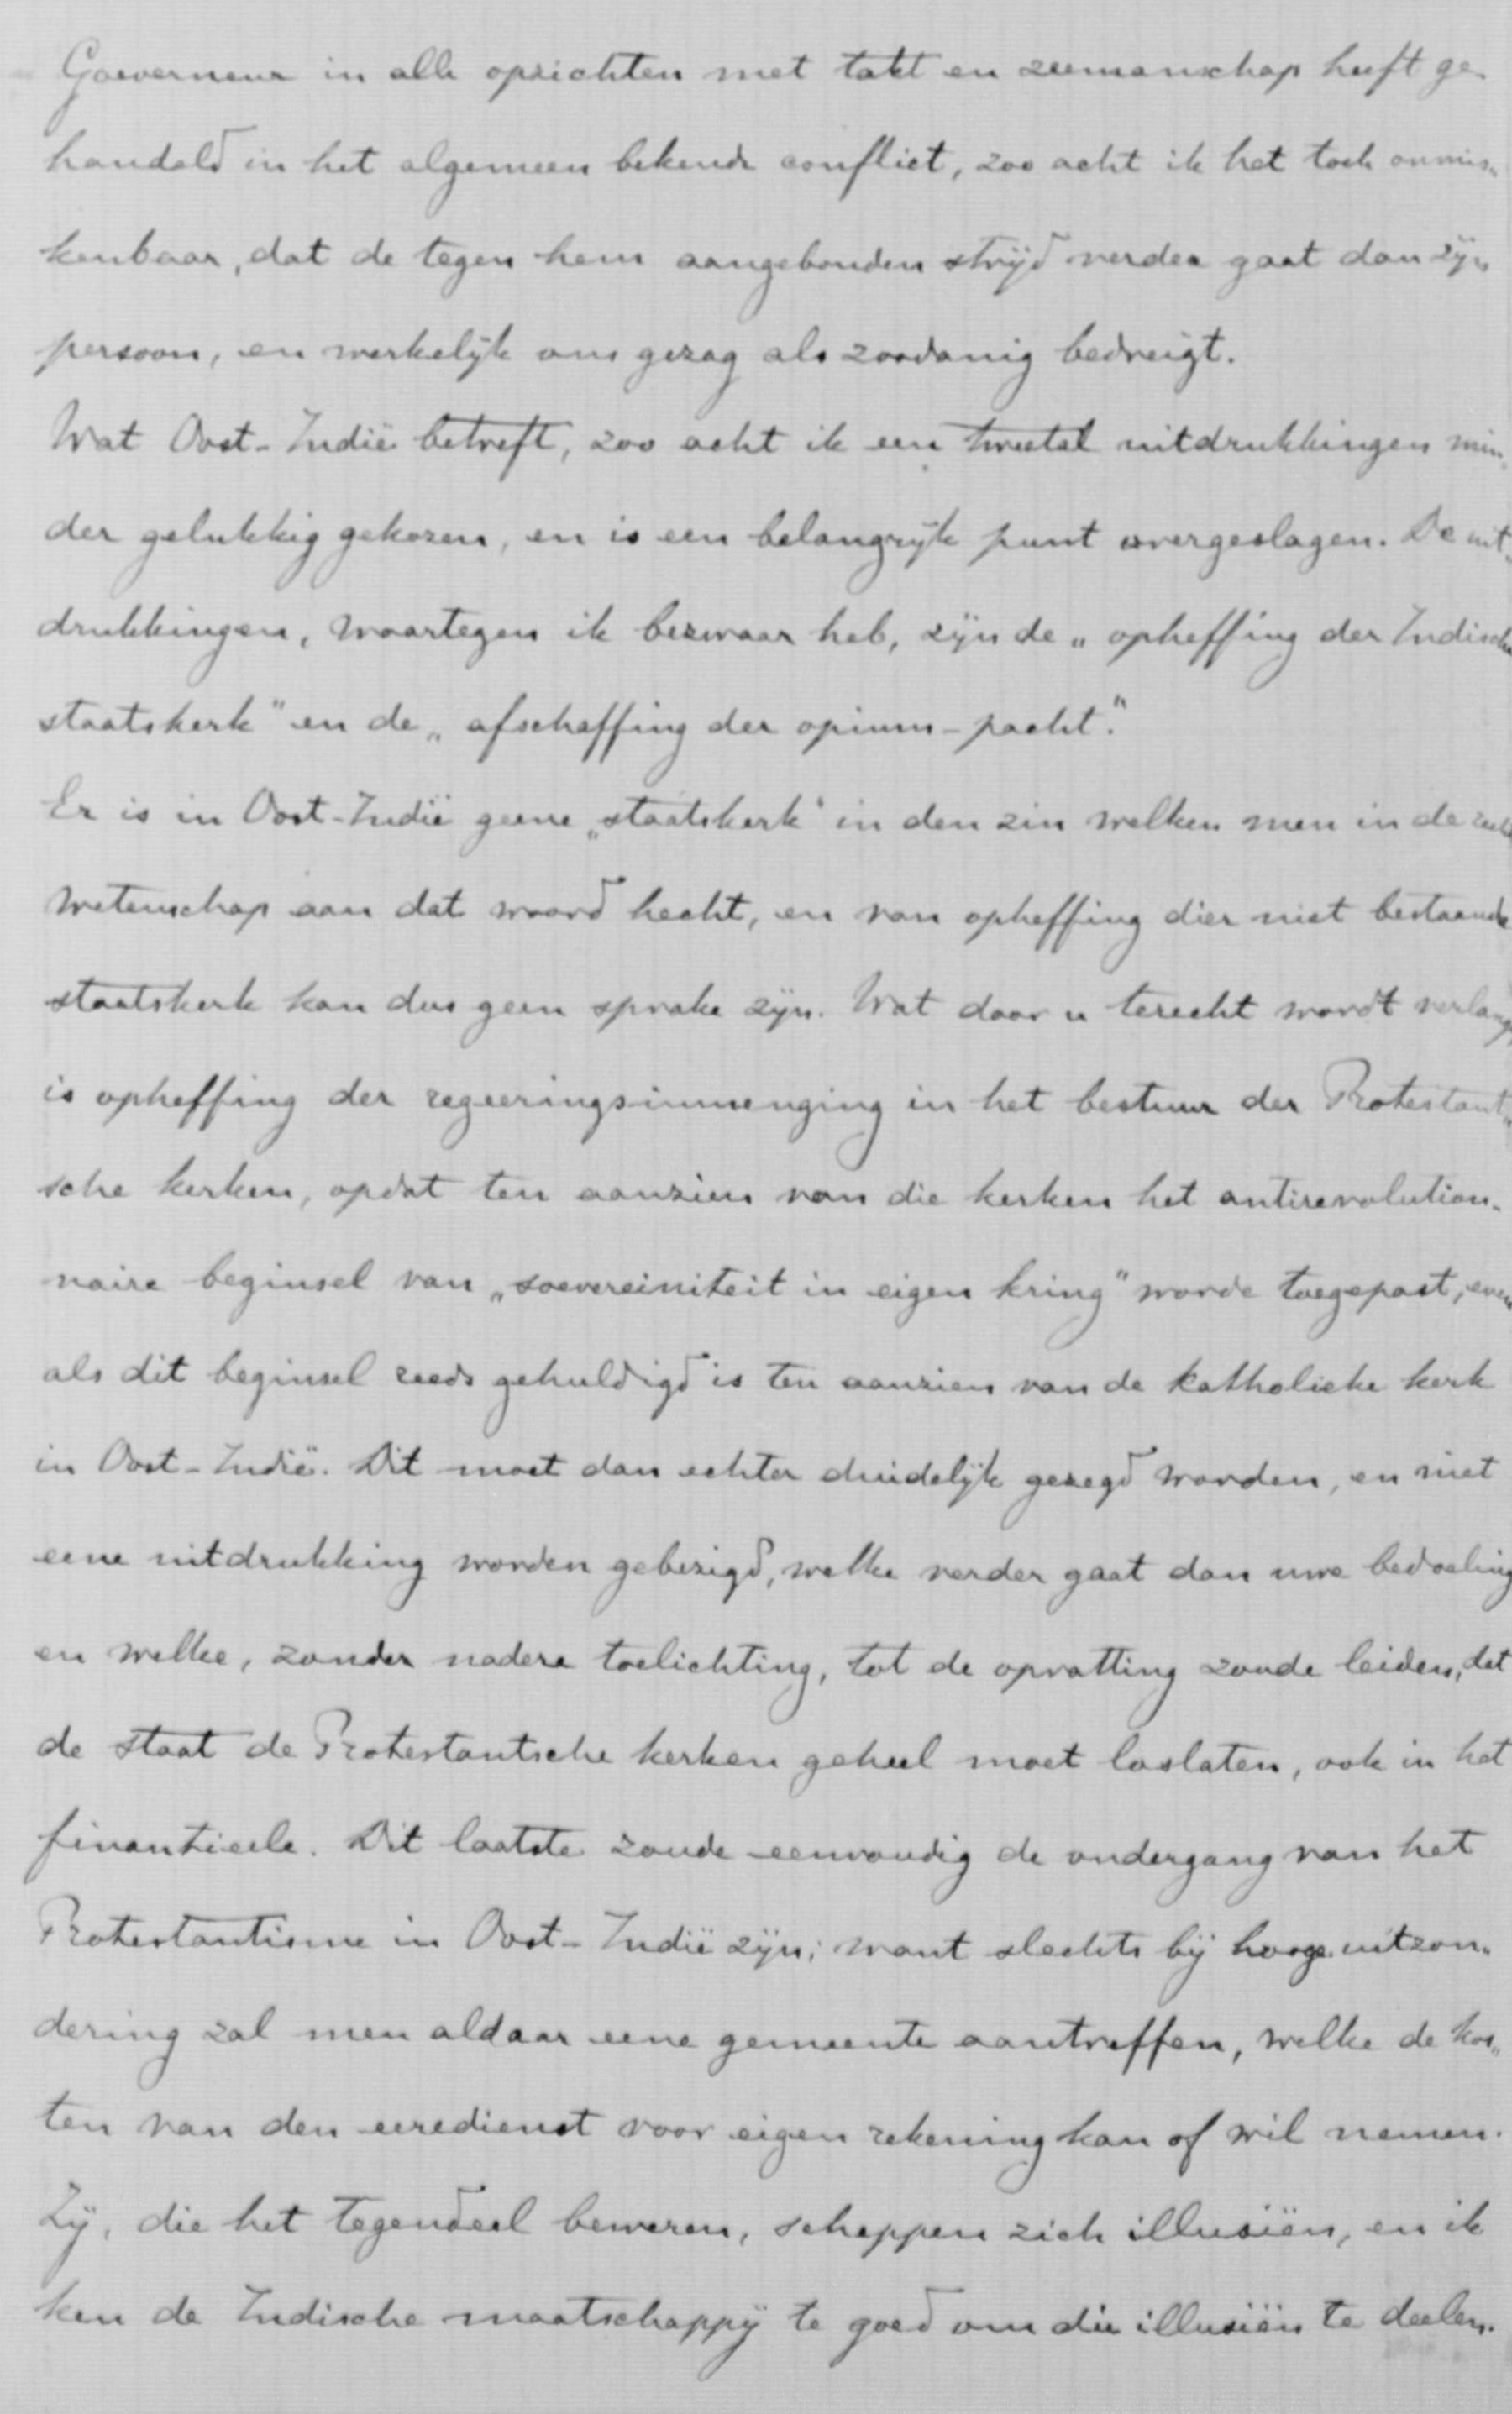 Goeverneur in alle opzichten met takt en zeemanschap heeft ge„
handeld in het algemeen bekende conflict, zoo acht ik het toch onmis„
kenbaar, dat de tegen hem aangebonden strijd verder gaat dan zijn
persoon, en werkelijk ons gezag als zoodanig bedreigt.
Wat Oost-Indië betreft, zoo acht ik een tweetal uitdrukkingen min„
der gelukkig gekozen, en is een belangrijk punt overgeslagen. De uit„
drukkingen, waartegen ik bezwaar heb, zijn de „opheffing der Indische
staatskerk" en de „afschaffing der opium-pacht."
Er is in Oost-Indië geene „staatskerk" in den zin welken men in de
wetenschap aan dat woord hecht, en van opheffing dier niet bestaande
staatskerk kan dus geen sprake zijn. Wat door u terecht wordt verlangd,
is opheffing der regeeringsinmenging in het bestuur der Protestant„
sche kerken, opdat ten aanzien van die kerken het antirevolution„
naire beginsel van „soevereiniteit in eigen kring" worde toegepast, even
als dit beginsel reeds gehuldigd is ten aanzien van de katholieke kerk
in Oost-Indië. Dit moet dan echter duidelijk gezegd worden, en niet
eene uitdrukking worden gebezigd, welke verder gaat dan uwe bedoeling
en welke, zonder nadere toelichting, tot de opvatting zoude leiden, dat
de staat de Protestantsche kerken geheel moet loslaten, ook in het
finantieele. Dit laatste zoude eenvoudig de ondergang van het
Protestantisme in Oost-Indië zijn; want slechts bij hooge uitzon„
dering zal men aldaar eene gemeente aantreffen, welke de kos„
ten van den eeredienst voor eigen rekening kan of wil nemen.
Zij, die het tegendeel beweren, scheppen zich illusiën, en ik
ken de Indische maatschappij te goed om die illusiën te deelen.